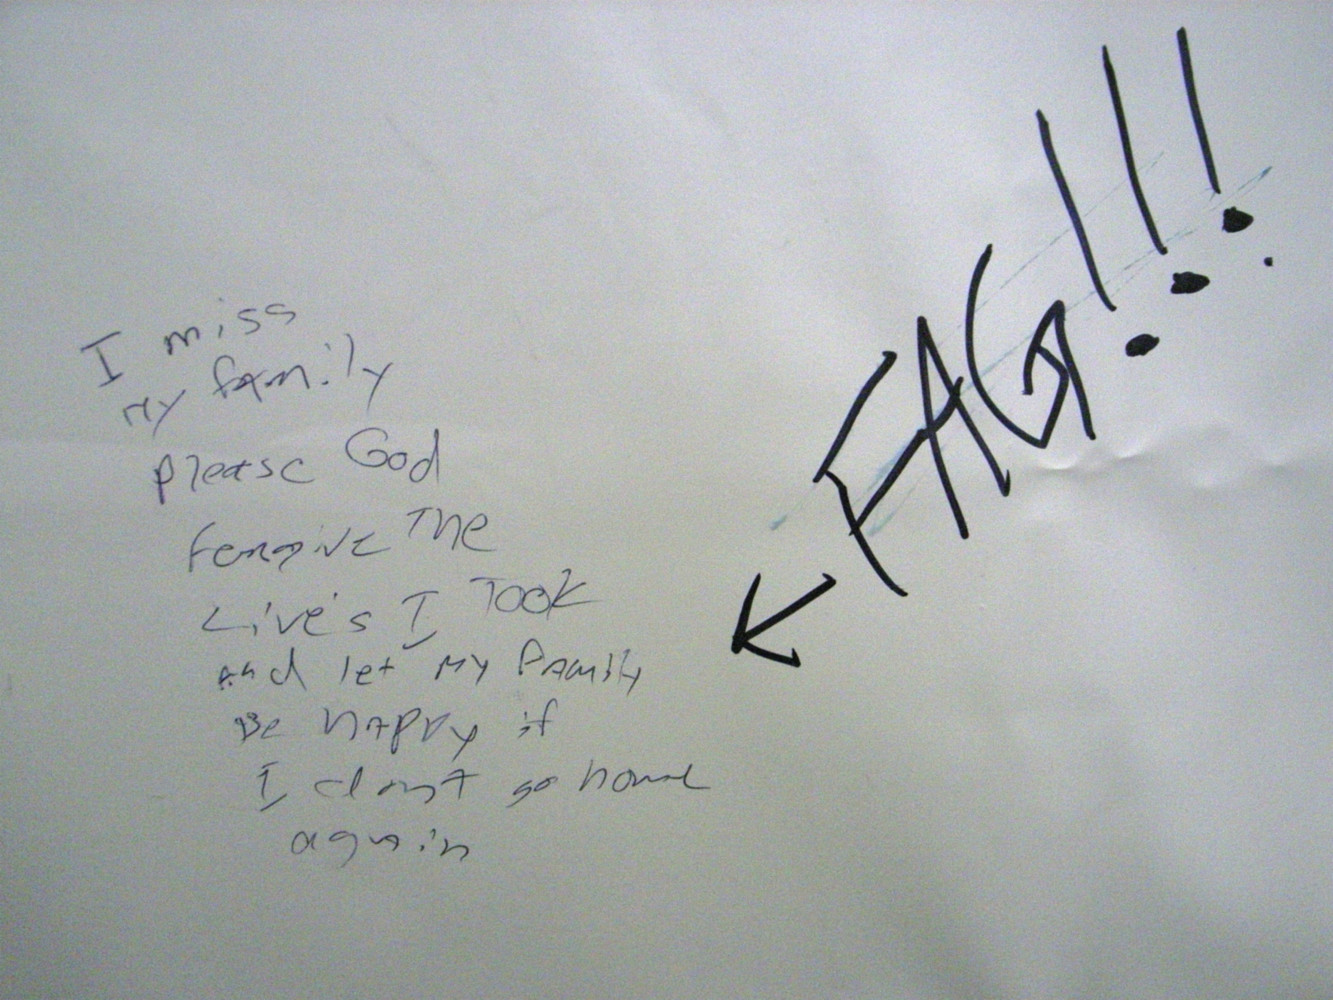 I miss
my family
please God
forgive The
Live's I Took
and let my family
Be happy if
I don't go home
again
FAG!!!